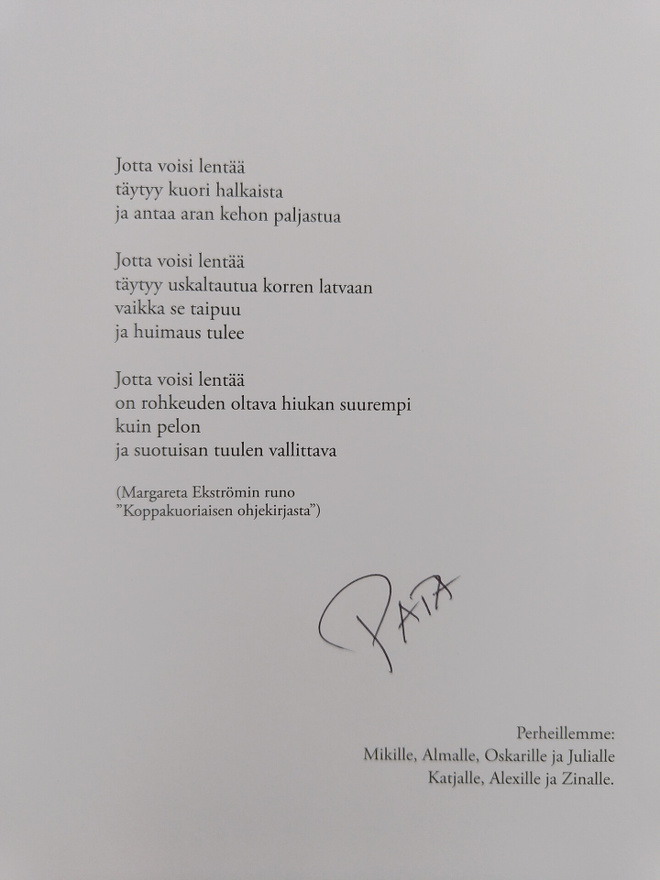 Jotta voisi lentää
täytyy kuori halkaista
ja antaa aran kehon paljastua
Jotta voisi lentää
täytyy uskaltautua korren latvaan
vaikka se taipuu
ja huimaus tulee
Jotta voisi lentää
on rohkeuden oltava hiukan suurempi
kuin pelon
ja suotuisan tuulen vallittava
(Margareta Ekströmin runo
”Koppakuoriaisen ohjekirjasta”)
PATA
Perheillemme:
Mikille, Almalle, Oskarille ja Julialle
Katjalle, Alexille ja Zinalle.